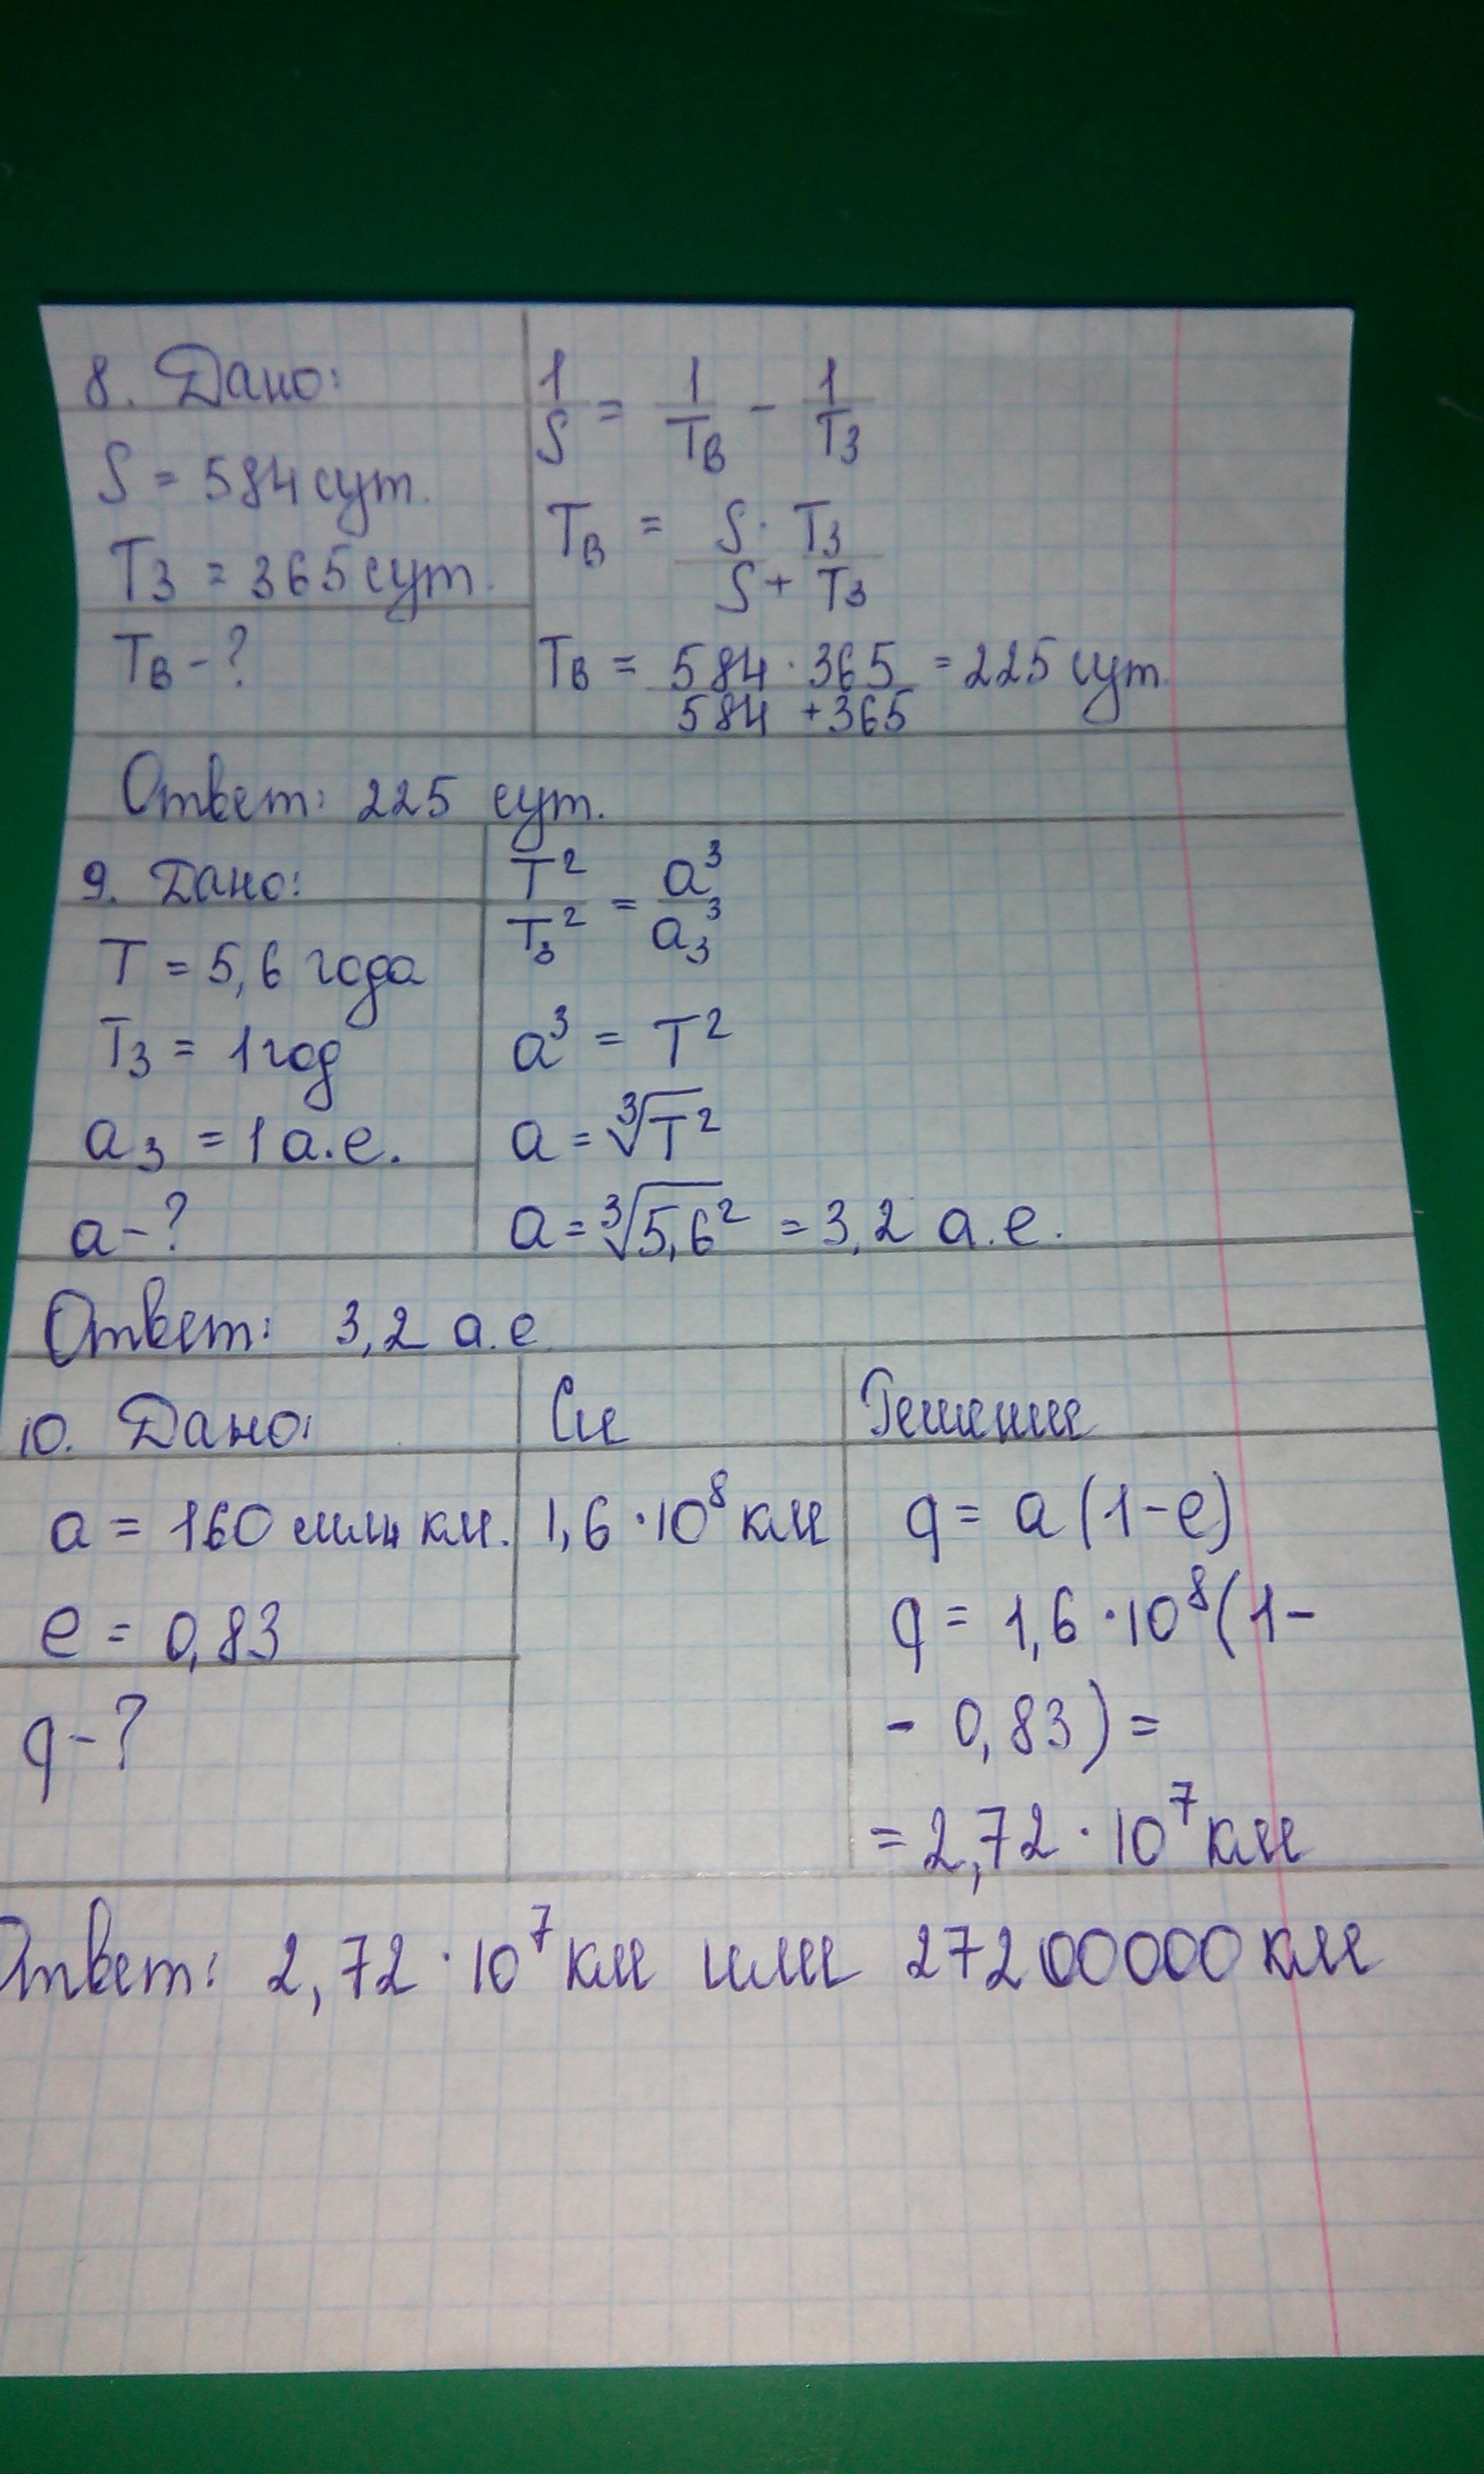 8. Дано:
S = 584 сут.
T₃ = 365 сут.
Tв - ?
1/S = 1/Tв - 1/T₃
Tв = S · T₃ / S + T₃
Tв = 584 · 365 / 584 + 365 = 225 сут.
Ответ: 225 сут.
9. Дано:
T = 5,6 года
T₃ = 1 год
a₃ = 1 а.е.
a - ?
T²/T₃² = a³/a₃³
a³ = T²
a = ∛T²
a = ∛5,6² = 3,2 а.е.
Ответ: 3,2 а.е
10. Дано:
a = 160 млн км.
e = 0,83
q - ?
Си
1,6 · 10⁸ км
Решение
q = a (1 - e)
q = 1,6 · 10⁸ (1 -
- 0,83) =
= 2,72 · 10⁷ км
Ответ: 2,72 · 10⁷ км или 27200000 км